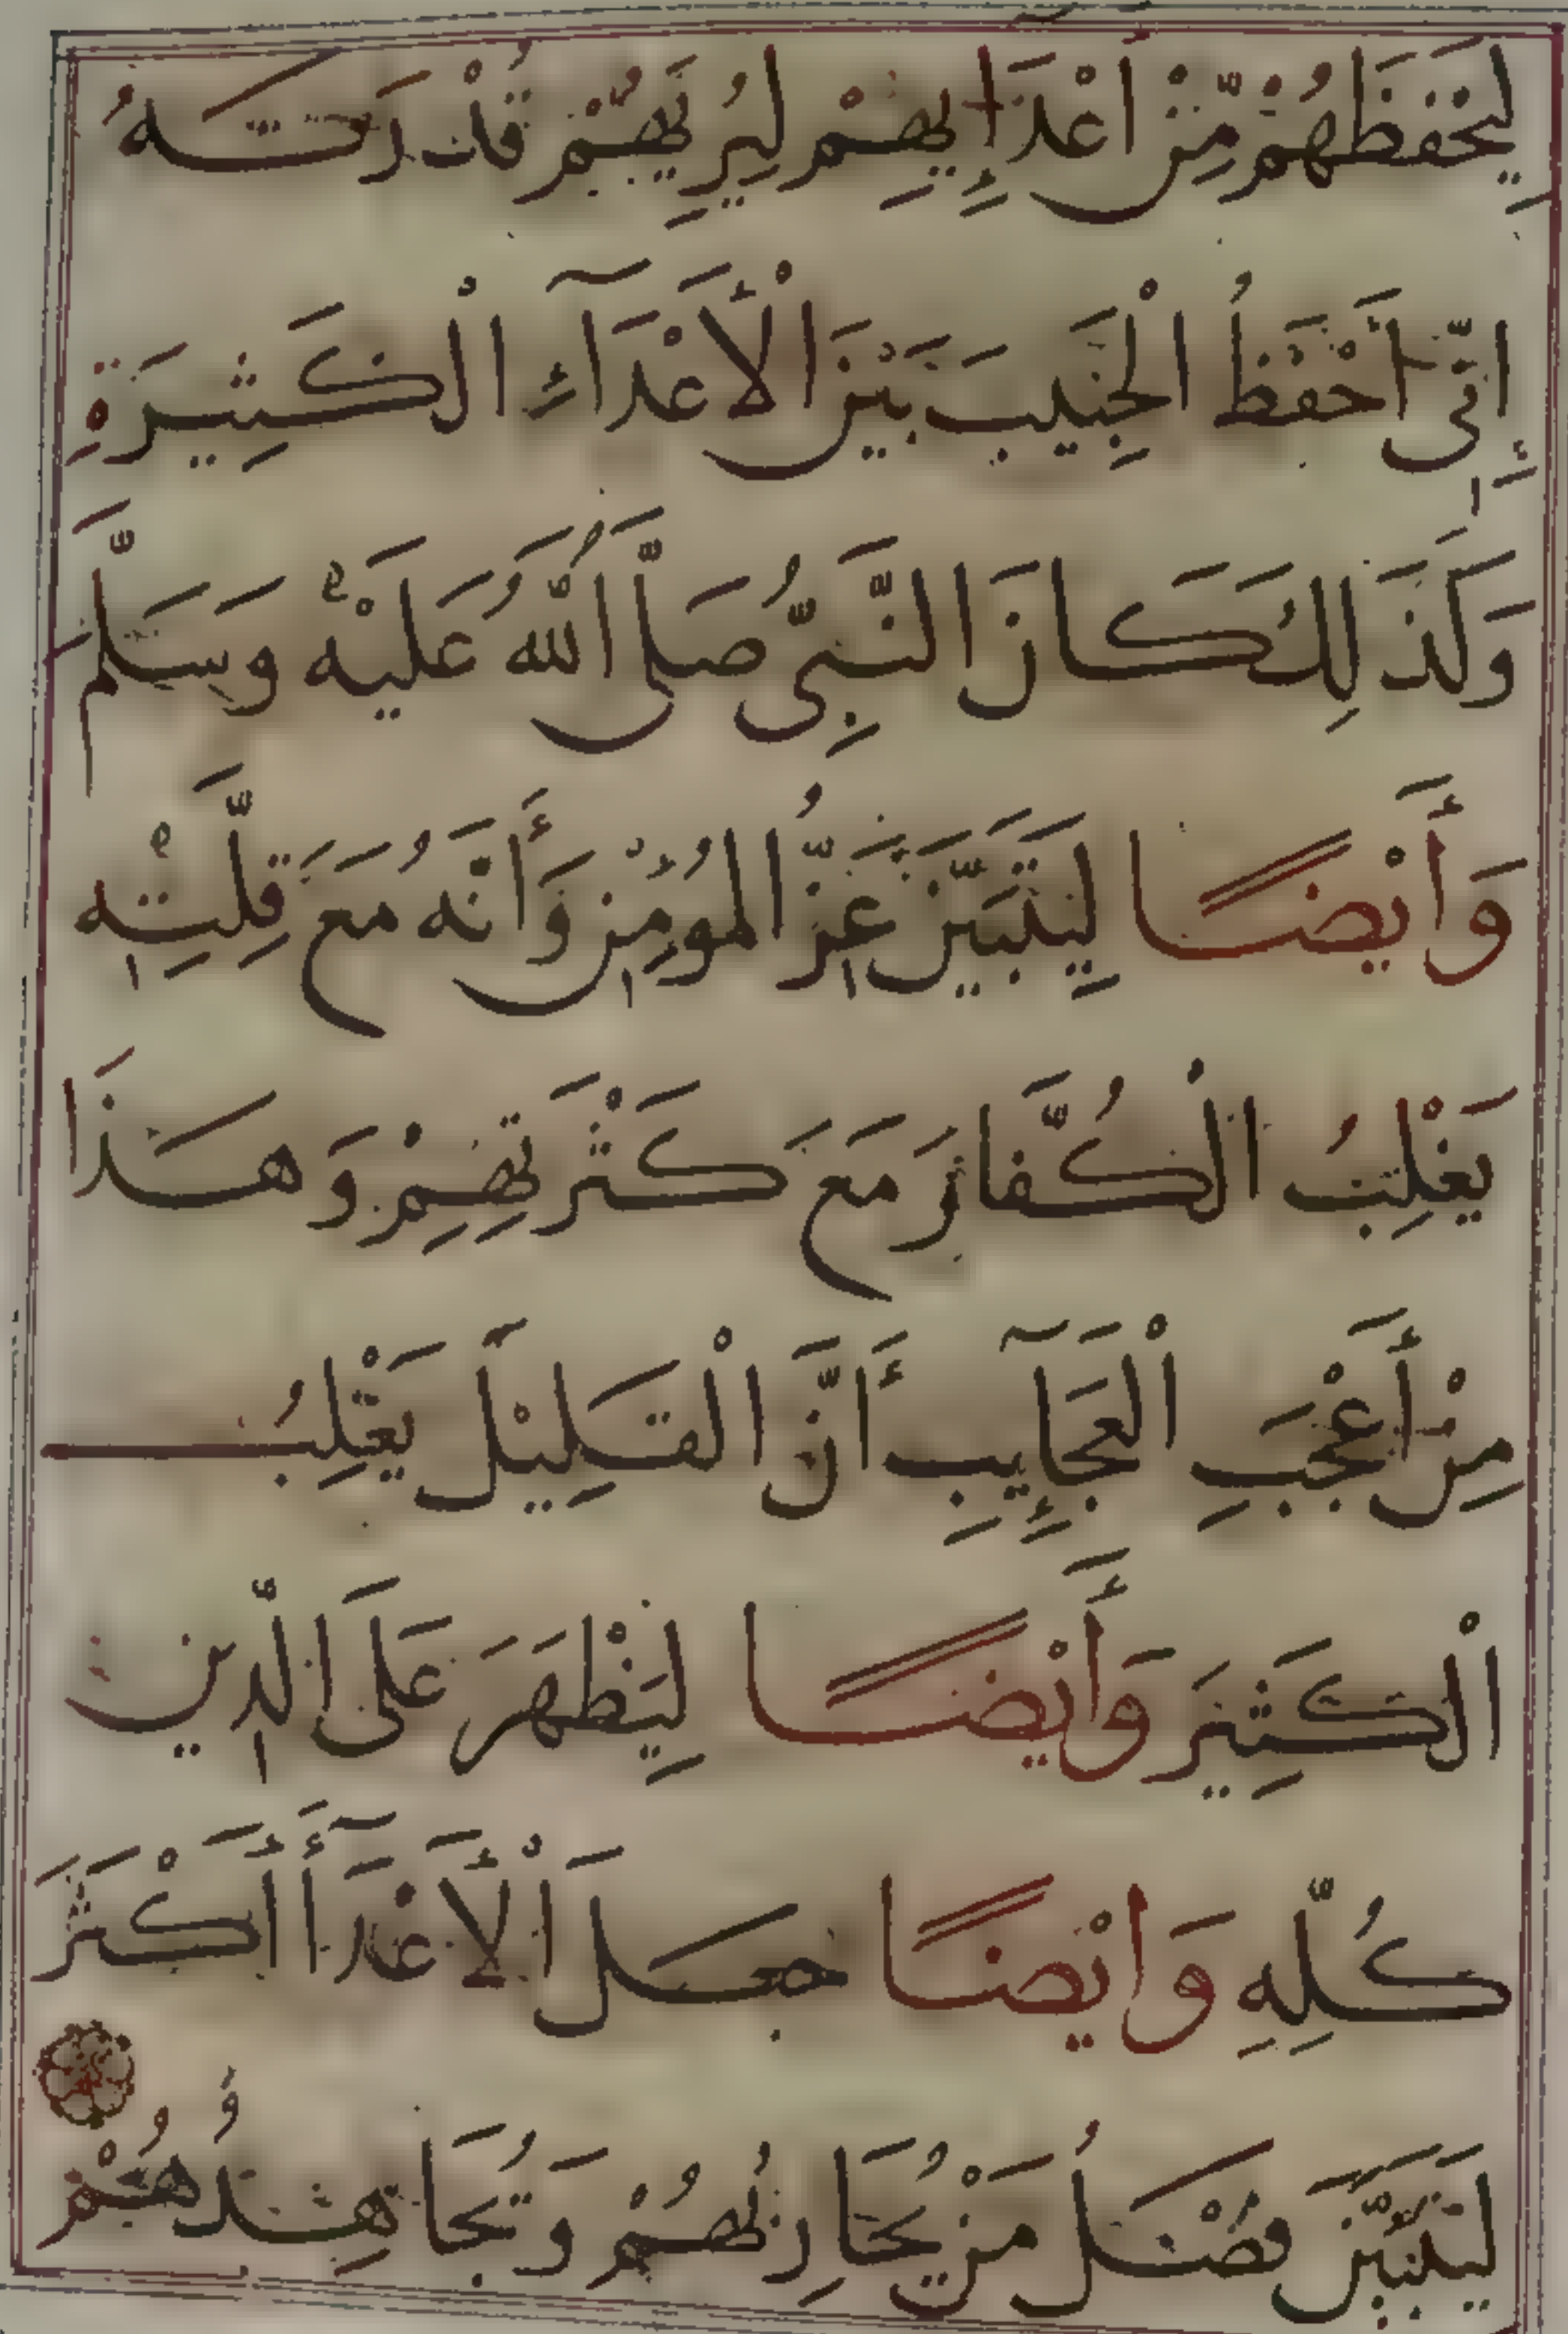 لِيَحْفَظَهُمْ مِّنْ أَعْدَإِيهِمْ لِيُرِيَهُمْ قُدْرَتَهُ
إِنِّي أَحْفَظُ الْحَبِيبَ بَيْنَ الْأَعْدَآءِ الْكَثِيرَةِ
وَكَذَلِكَ كَانَ النَّبِيُّ صَلَّى اللَّهُ عَلَيْهِ وَسَلَّمَ
وَأَيْضًا لِيَتَبَيَّنَ عِزُّ الْمُؤْمِنِ وَأَنَّهُ مَعَ قِلَّتِهِ
يَغْلِبُ الْكُفَّارَ مَعَ كَثْرَتِهِمْ وَهَذَا
مِنْ أَعْجَبِ الْعَجَآئِبِ أَنَّ الْقَلِيْلَ يَغْلِبُ
الْكَثِيرَ وَأَيْضًا لِيَظْهَرَ عَلَى الدِّينِ
كُلِّهِ وَأَيْضًا جَعَلَ الْأَعْدَآأَ أَكْثَرَ
لِيَتَبَيَّنَ فَضْلُ مَنْ يُحَارِبُهُمْ وَيُجَاهِدُهُمْ